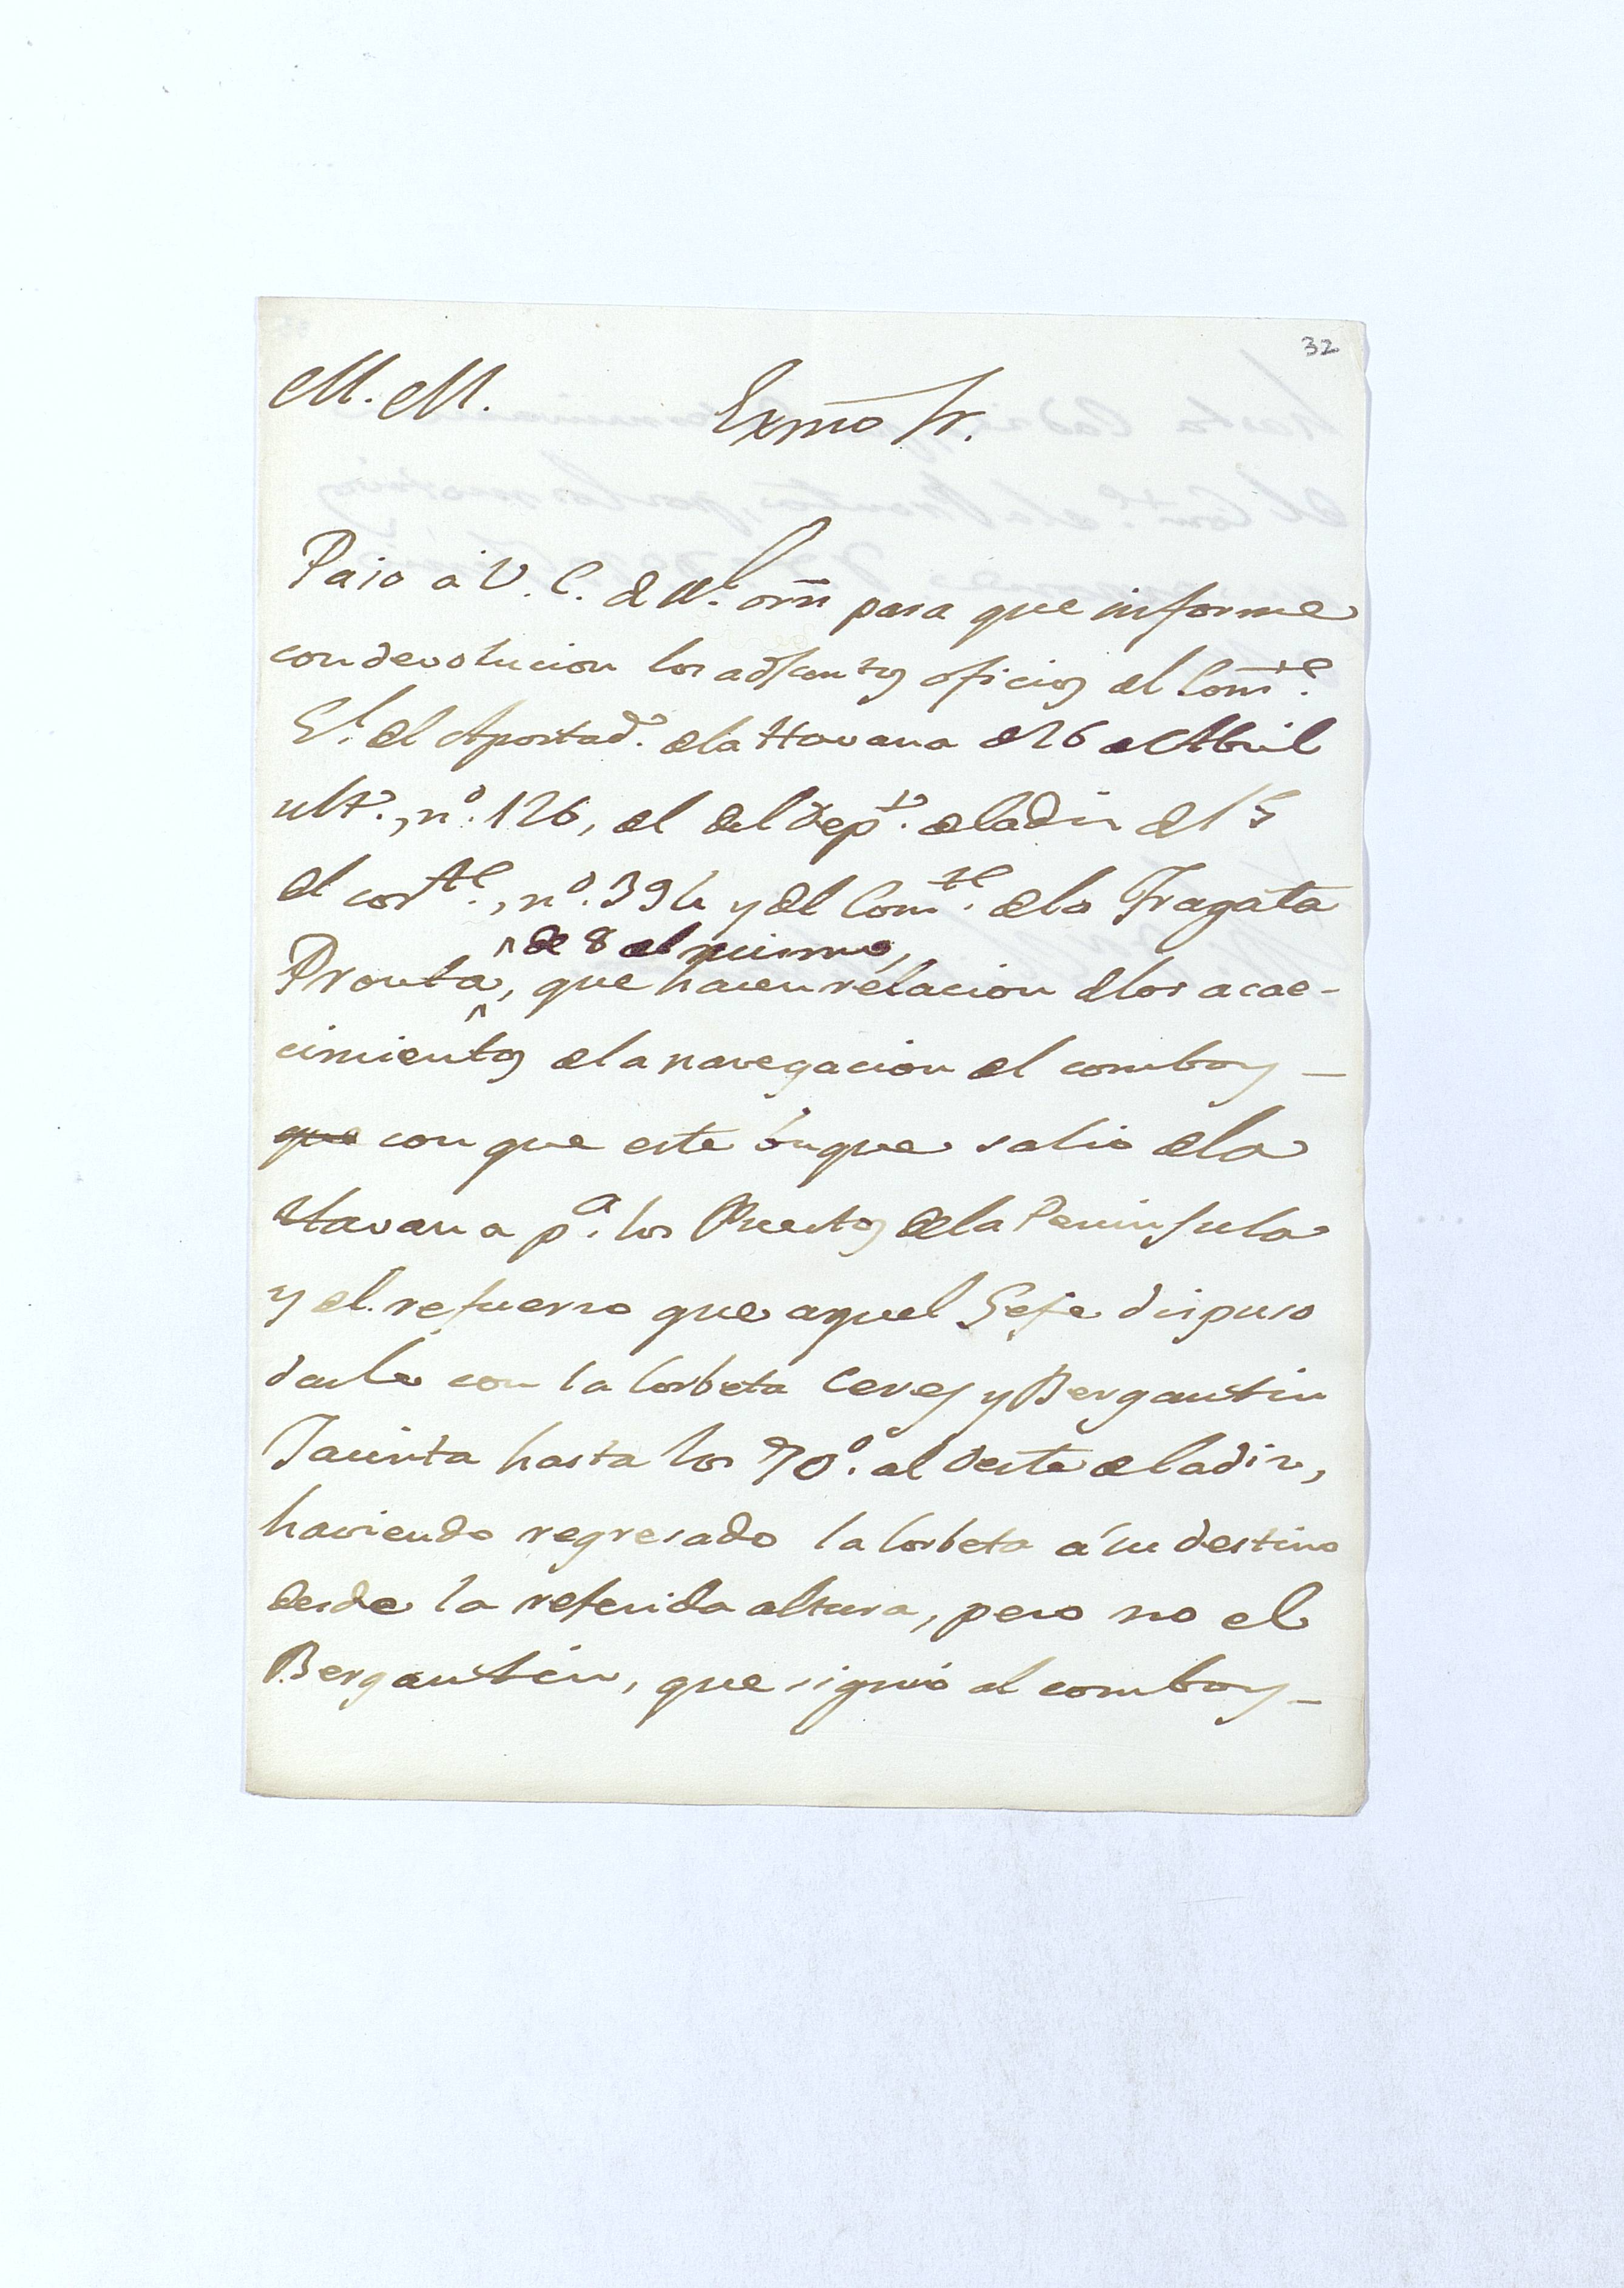 32
M. M. Exmo Sr.
Paso a V. E. de Rl. orn para que informe
con devolucion los adjuntos oficios del Comte.
Gl. del Apostado. de la Havana de 26 de Abril
ulto., no. 126, el del Depto. de Cadiz de 15
del corrte., no. 394 y del Comte. de la Fragata
^ de 8 del mismo,
Pronta, que hacen relacion de los acae-
cimientos de la navegacion del comboy
que con que este buque salio de la
Havana pa. los Puertos de la Peninsula
y del refuerzo que aquel Gefe dispuso
darle con la Corbeta Ceres y Bergantin
Jacinta hasta los 70°. al Oeste de Cadiz,
haviendo regresado la Corbeta a su destino
desde la referida altura, pero no el
Bergantin, que siguió al comboy